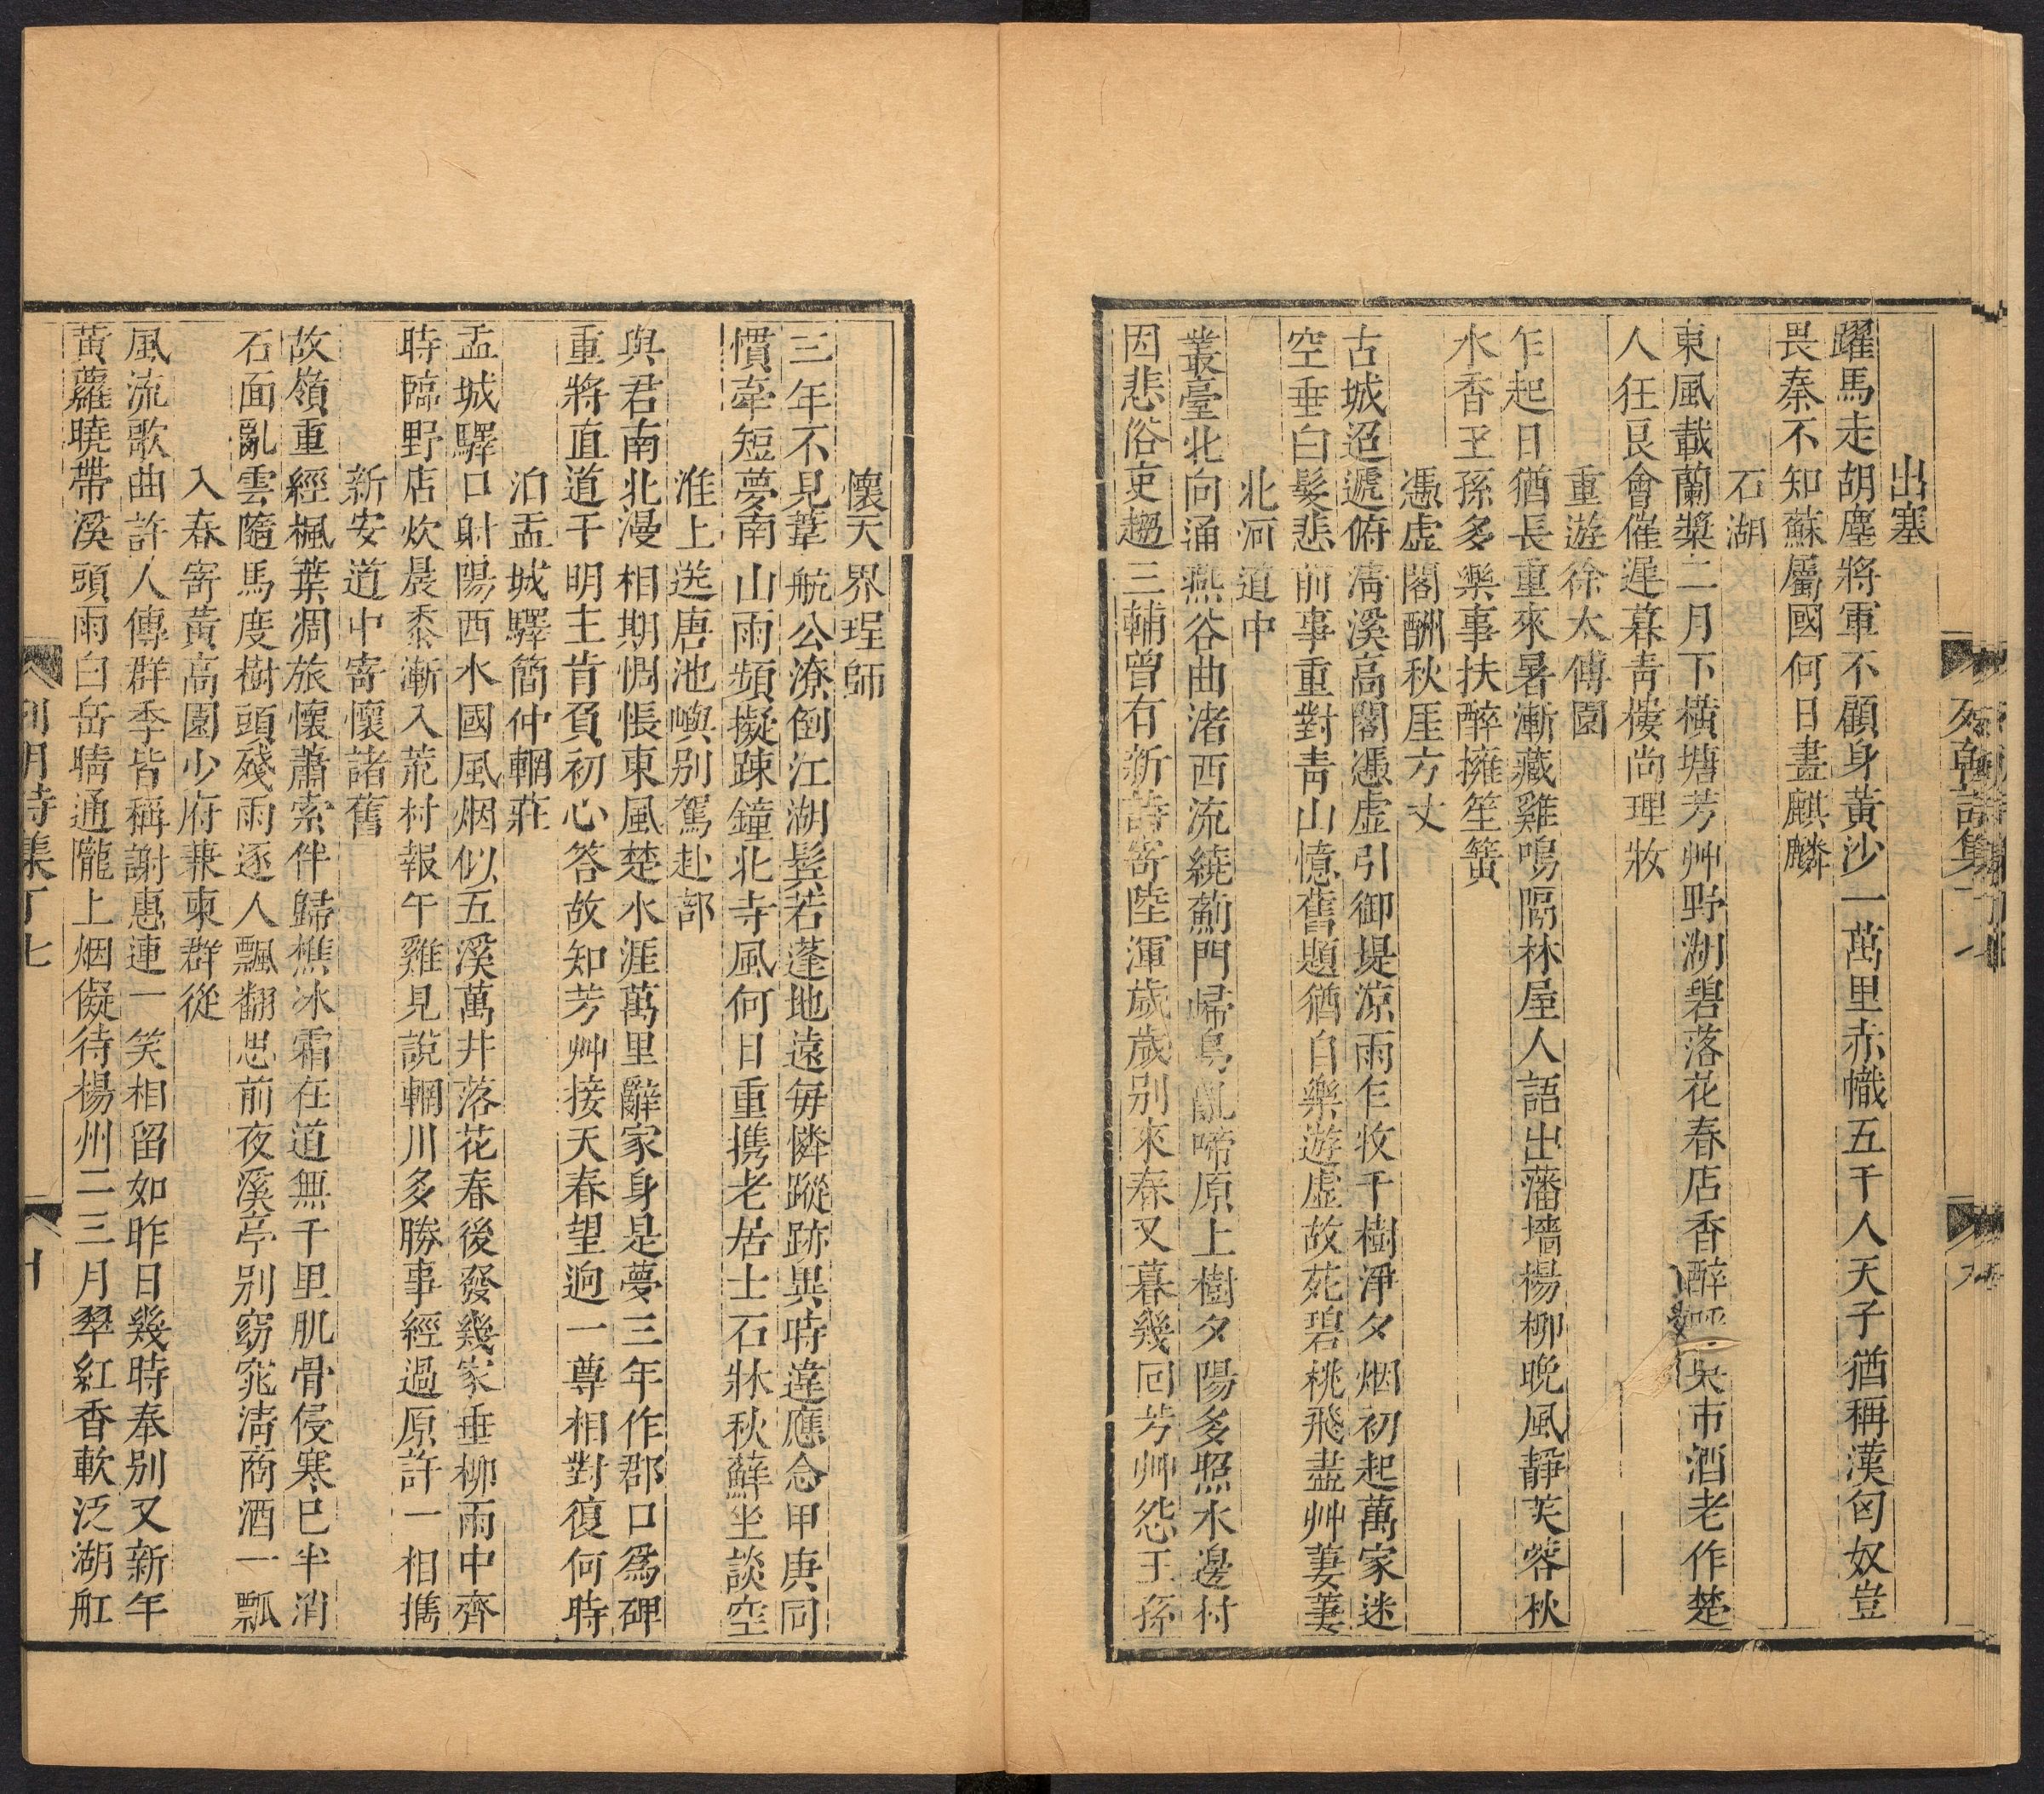 出塞
躍馬走胡塵將軍不顧身黃沙一萬里赤幟五千人天子猶稱漢匈奴豈
畏秦不知蘇屬國何日畫麒麟
石湖
東風載蘭槳二月下橫塘芳艸野湖碧落花春店香醉呼吳市酒老作楚
人狂良會催遲暮青樓尚理妝
重遊徐太傅園
乍起日猶長重來暑漸藏雞鳴隔林屋人語出藩墻楊柳晚風靜芙蓉秋
水香王孫多樂事扶醉擁笙簧
憑虛閣酬秋厓方丈
古城迢遞俯淸溪高閣憑虛引御堤凉雨乍收千樹淨夕烟初起萬家迷
空垂白髮悲前事重對靑山憶舊題猶自樂遊虛故苑碧桃飛盡艸萋萋
北河道中
叢臺北向涌燕谷曲渚西流繞薊門歸鳥亂啼原上樹夕陽多照水邊村
因悲俗吏趨三輔曾有新詩寄陸渾歲歲别來春又暮幾回芳艸怨王孫
懷天界珵師
三年不見葦航公潦倒江湖髩若蓬地遠每憐蹤跡異時違應念甲庚同
慣牽短夢南山雨頻擬踈鐘北寺風何日重携老居士石牀秋蘚坐談空
淮上送唐池嶼别駕赴部
與君南北漫相期惆悵東風楚水涯萬里辭家身是夢三年作郡口爲碑
重將直道干明主肯負初心答故知芳艸接天春望逈一尊相對復何時
泊盂城驛簡仲輞莊
盂城驛口射陽西水國風烟似五溪萬井落花春後發幾家垂柳雨中齊
時臨野店炊晨黍漸入荒村報午雞見說輞川多勝事經過原許一相擕
新安道中寄懷諸舊
故嶺重經楓葉凋旅懷蕭索伴歸樵冰霜在道無千里肌骨侵寒已半消
石面亂雲隨馬度樹頭殘雨逐人飄翻思前夜溪亭别窈窕淸商酒一瓢
入春寄黃高園少府兼柬群從
風流歌曲許人傳群季皆稱謝惠連一笑相留如昨日幾時奉别又新年
黃蘿曉帶溪頭雨白岳晴通隴上烟儗待楊州二三月翠紅香軟泛湖舡
列朝詩集丁七